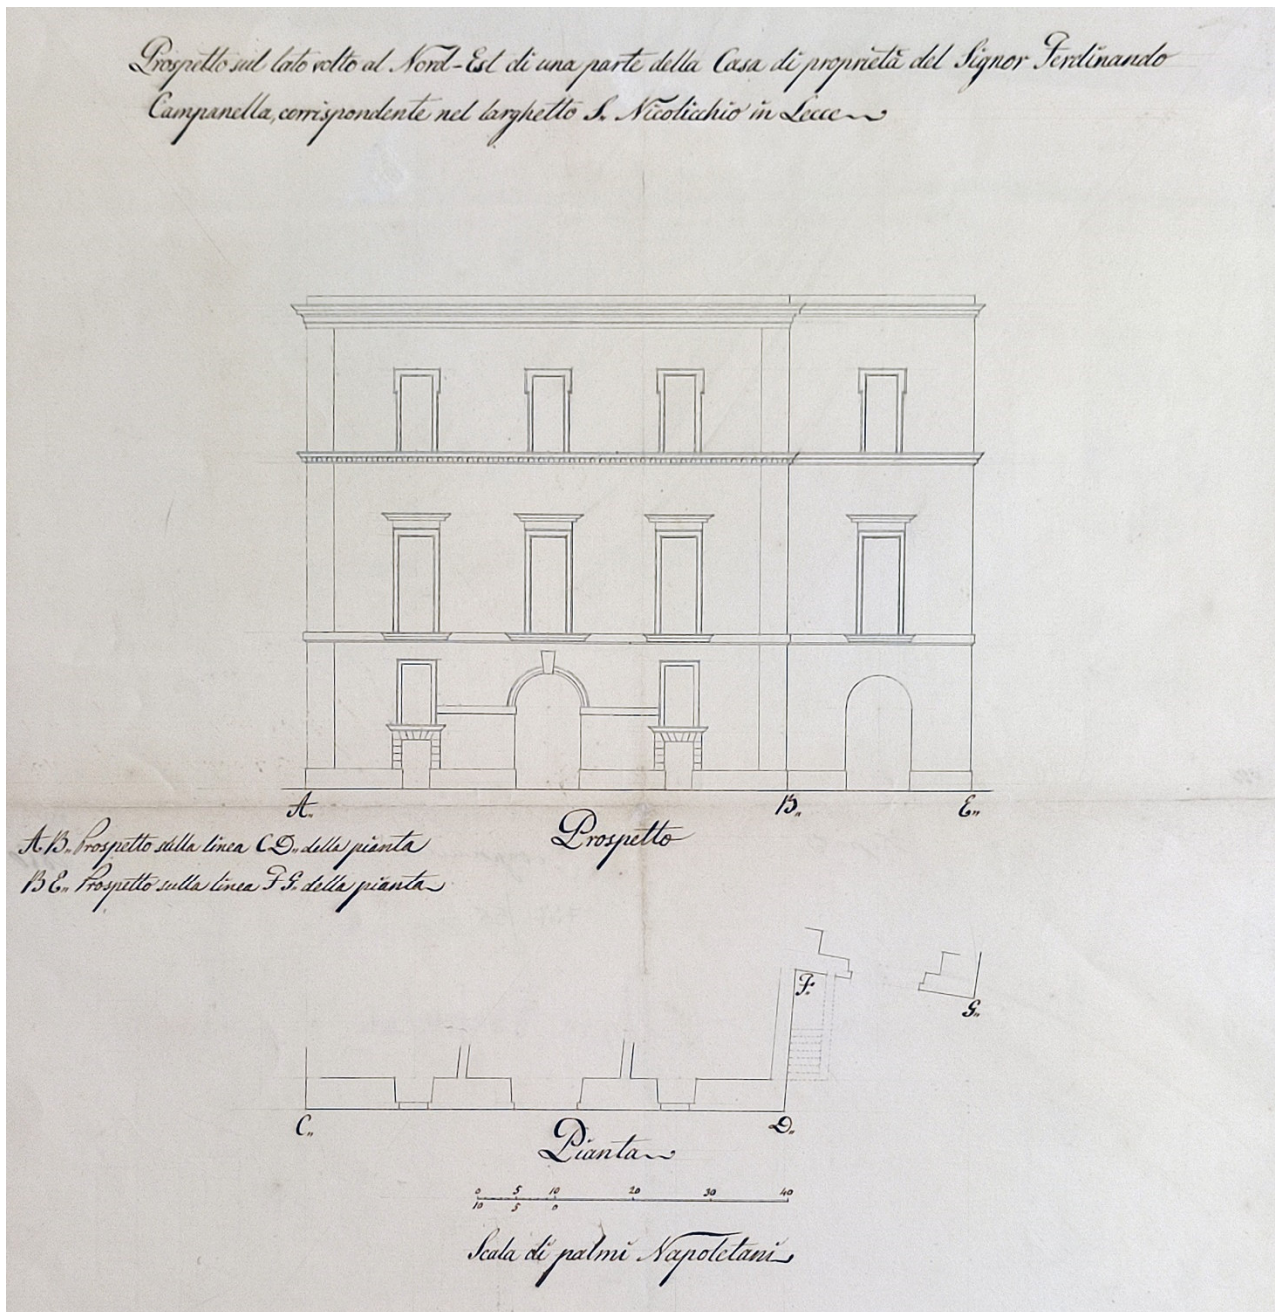 Prospetto sul lato volto al Nord-Est di una parte della Casa di proprietà del Signor Ferdinando
Campanella, corrispondente nel larghetto S. Nicolicchio in Lecce
A. B. E.
Prospetto
A B. Prospetto sulla linea C D. della pianta
B E. Prospetto sulla linea F G. della pianta
F.
G.
C. D.
Pianta
0 5 10 20 30 40
10 5 0
Scala di palmi Napoletani